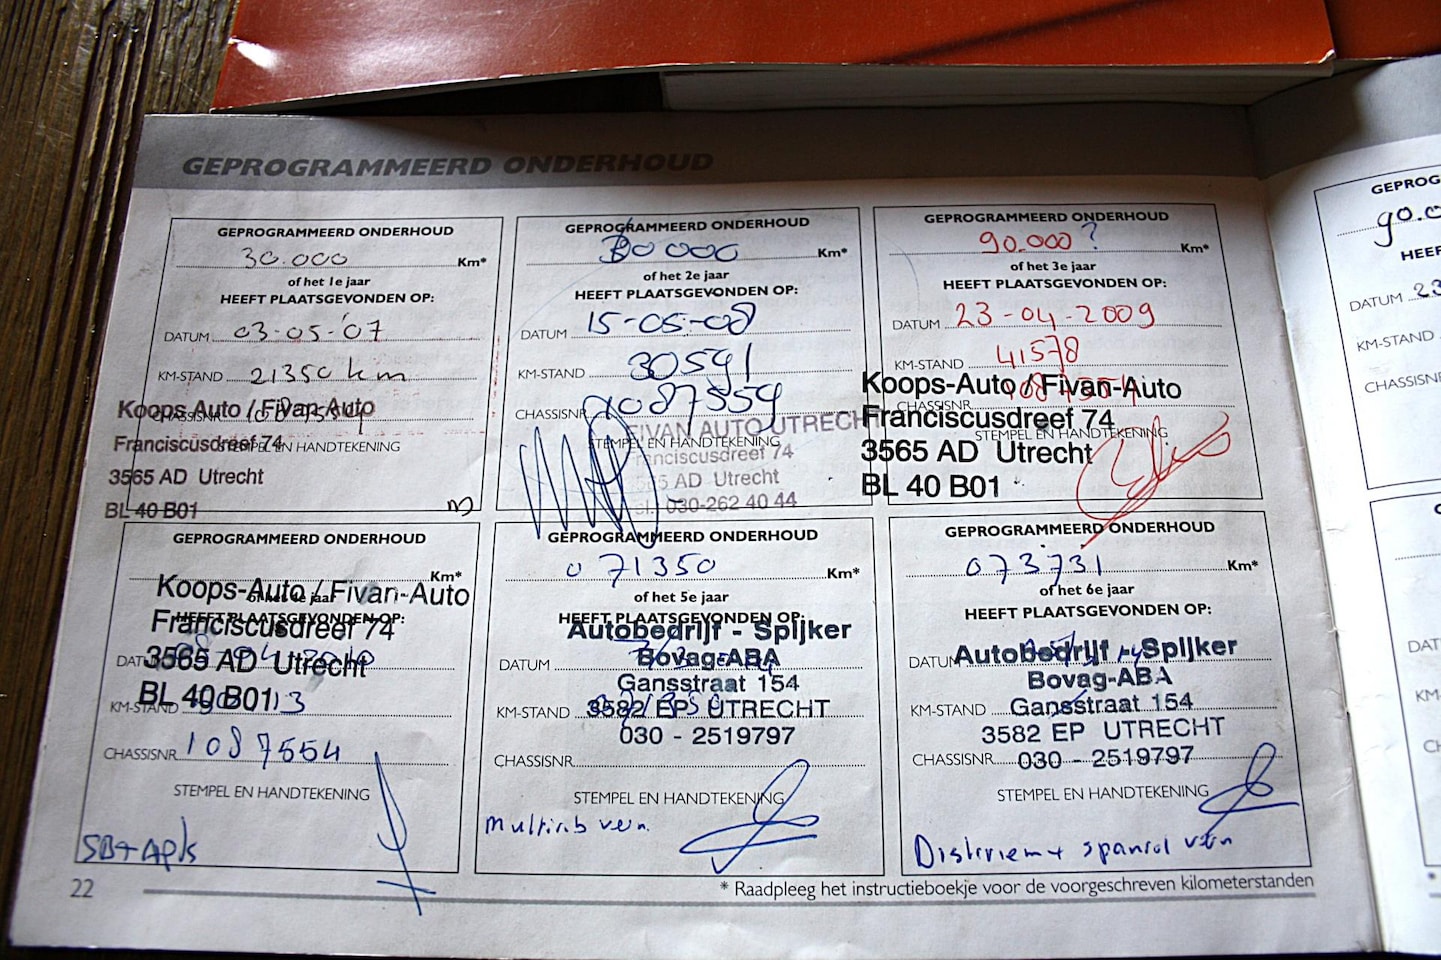 GEPROGRAMMEERD ONDERHOUD
GEPROGRAMMEERD ONDERHOUD
30.000 Km*
of het 1e jaar
HEEFT PLAATSGEVONDEN OP:
DATUM 03-05-'07
KM-STAND 21350 km
CHASSISNR.
Koops-Auto / Fivan-Auto
Franciscusdreef 74
STEMPEL EN HANDTEKENING
3565 AD Utrecht
BL 40 B01
GEPROGRAMMEERD ONDERHOUD
30000 Km*
of het 2e jaar
HEEFT PLAATSGEVONDEN OP:
DATUM 15-05-08
KM-STAND 30591
CHASSISNR. 1087554
FIVAN AUTO UTRECHT
STEMPEL EN HANDTEKENING
Franciscusdreef 74
3565 AD Utrecht
Tel.: 030-262 40 44
GEPROGRAMMEERD ONDERHOUD
90.000? Km*
of het 3e jaar
HEEFT PLAATSGEVONDEN OP:
DATUM 23-04-2009
KM-STAND 41578
Koops-Auto / Fivan-Auto
CHASSISNR.
Franciscusdreef 74
STEMPEL EN HANDTEKENING
3565 AD Utrecht
BL 40 B01
GEPROGRAMMEERD ONDERHOUD
Km*
Koops-Auto / Fivan-Auto
of het 4e jaar
HEEFT PLAATSGEVONDEN OP:
Franciscusdreef 74
DATUM
3565 AD Utrecht
BL 40 B01
KM-STAND
CHASSISNR. 1087554
STEMPEL EN HANDTEKENING
SB+Apk
GEPROGRAMMEERD ONDERHOUD
071350 Km*
of het 5e jaar
HEEFT PLAATSGEVONDEN OP:
Autobedrijf - Spijker
Bovag-ABA
DATUM
Gansstraat 154
KM-STAND
3582 EP UTRECHT
030 - 2519797
CHASSISNR.
STEMPEL EN HANDTEKENING
GEPROGRAMMEERD ONDERHOUD
073731 Km*
of het 6e jaar
HEEFT PLAATSGEVONDEN OP:
Autobedrijf - Spijker
DATUM
Bovag-ABA
Gansstraat 154
KM-STAND
3582 EP UTRECHT
030 - 2519797
CHASSISNR.
STEMPEL EN HANDTEKENING
22
* Raadpleeg het instructieboekje voor de voorgeschreven kilometerstanden
GEPROG
90.0
HEEF
DATUM 23
KM-STAND
CHASSISNR